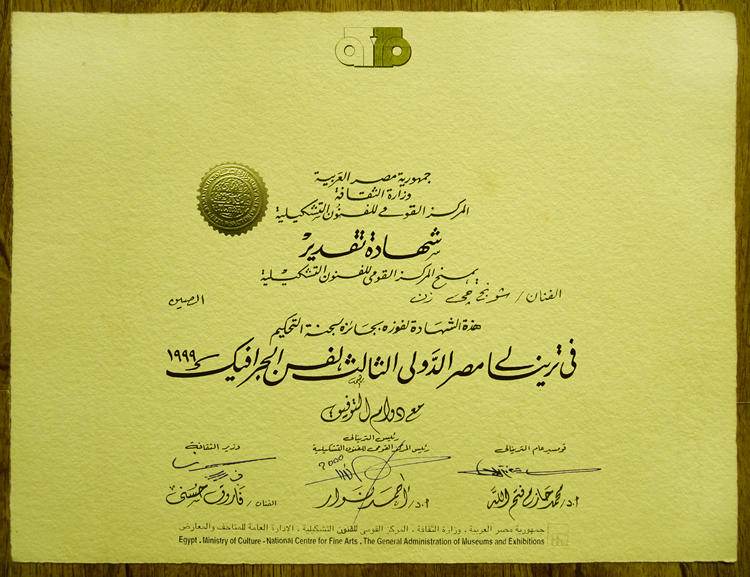 جمهورية مصر العربية
وزارة الثقافة
المركز القومي للفنون التشكيلية
شهادة تقدير
يمنح المركز القومى للفنون التشكيلية
الفنان / شونج جى زن الصين
هذه الشهادة لفوزه بجائزة لجنة التحكيم
فى ترينالى مصر الدولى الثالث لفن الجرافيك ١٩٩٩
مع دوام التوفيق
قوميسير عام الترينالى
أ.د/ محمد حازم فتح الله
رئيس الترينالى
رئيس المركز القومى للفنون التشكيلية
أ.د/ أحمد نوار
وزير الثقافة
الفنان / فاروق حسنى
جمهورية مصر العربية . وزارة الثقافة . المركز القومى للفنون التشكيلية . الادارة العامة للمتاحف والمعارض
Egypt . Ministry of Culture - National Centre for Fine Arts . The General Administration of Museums and Exhibitions